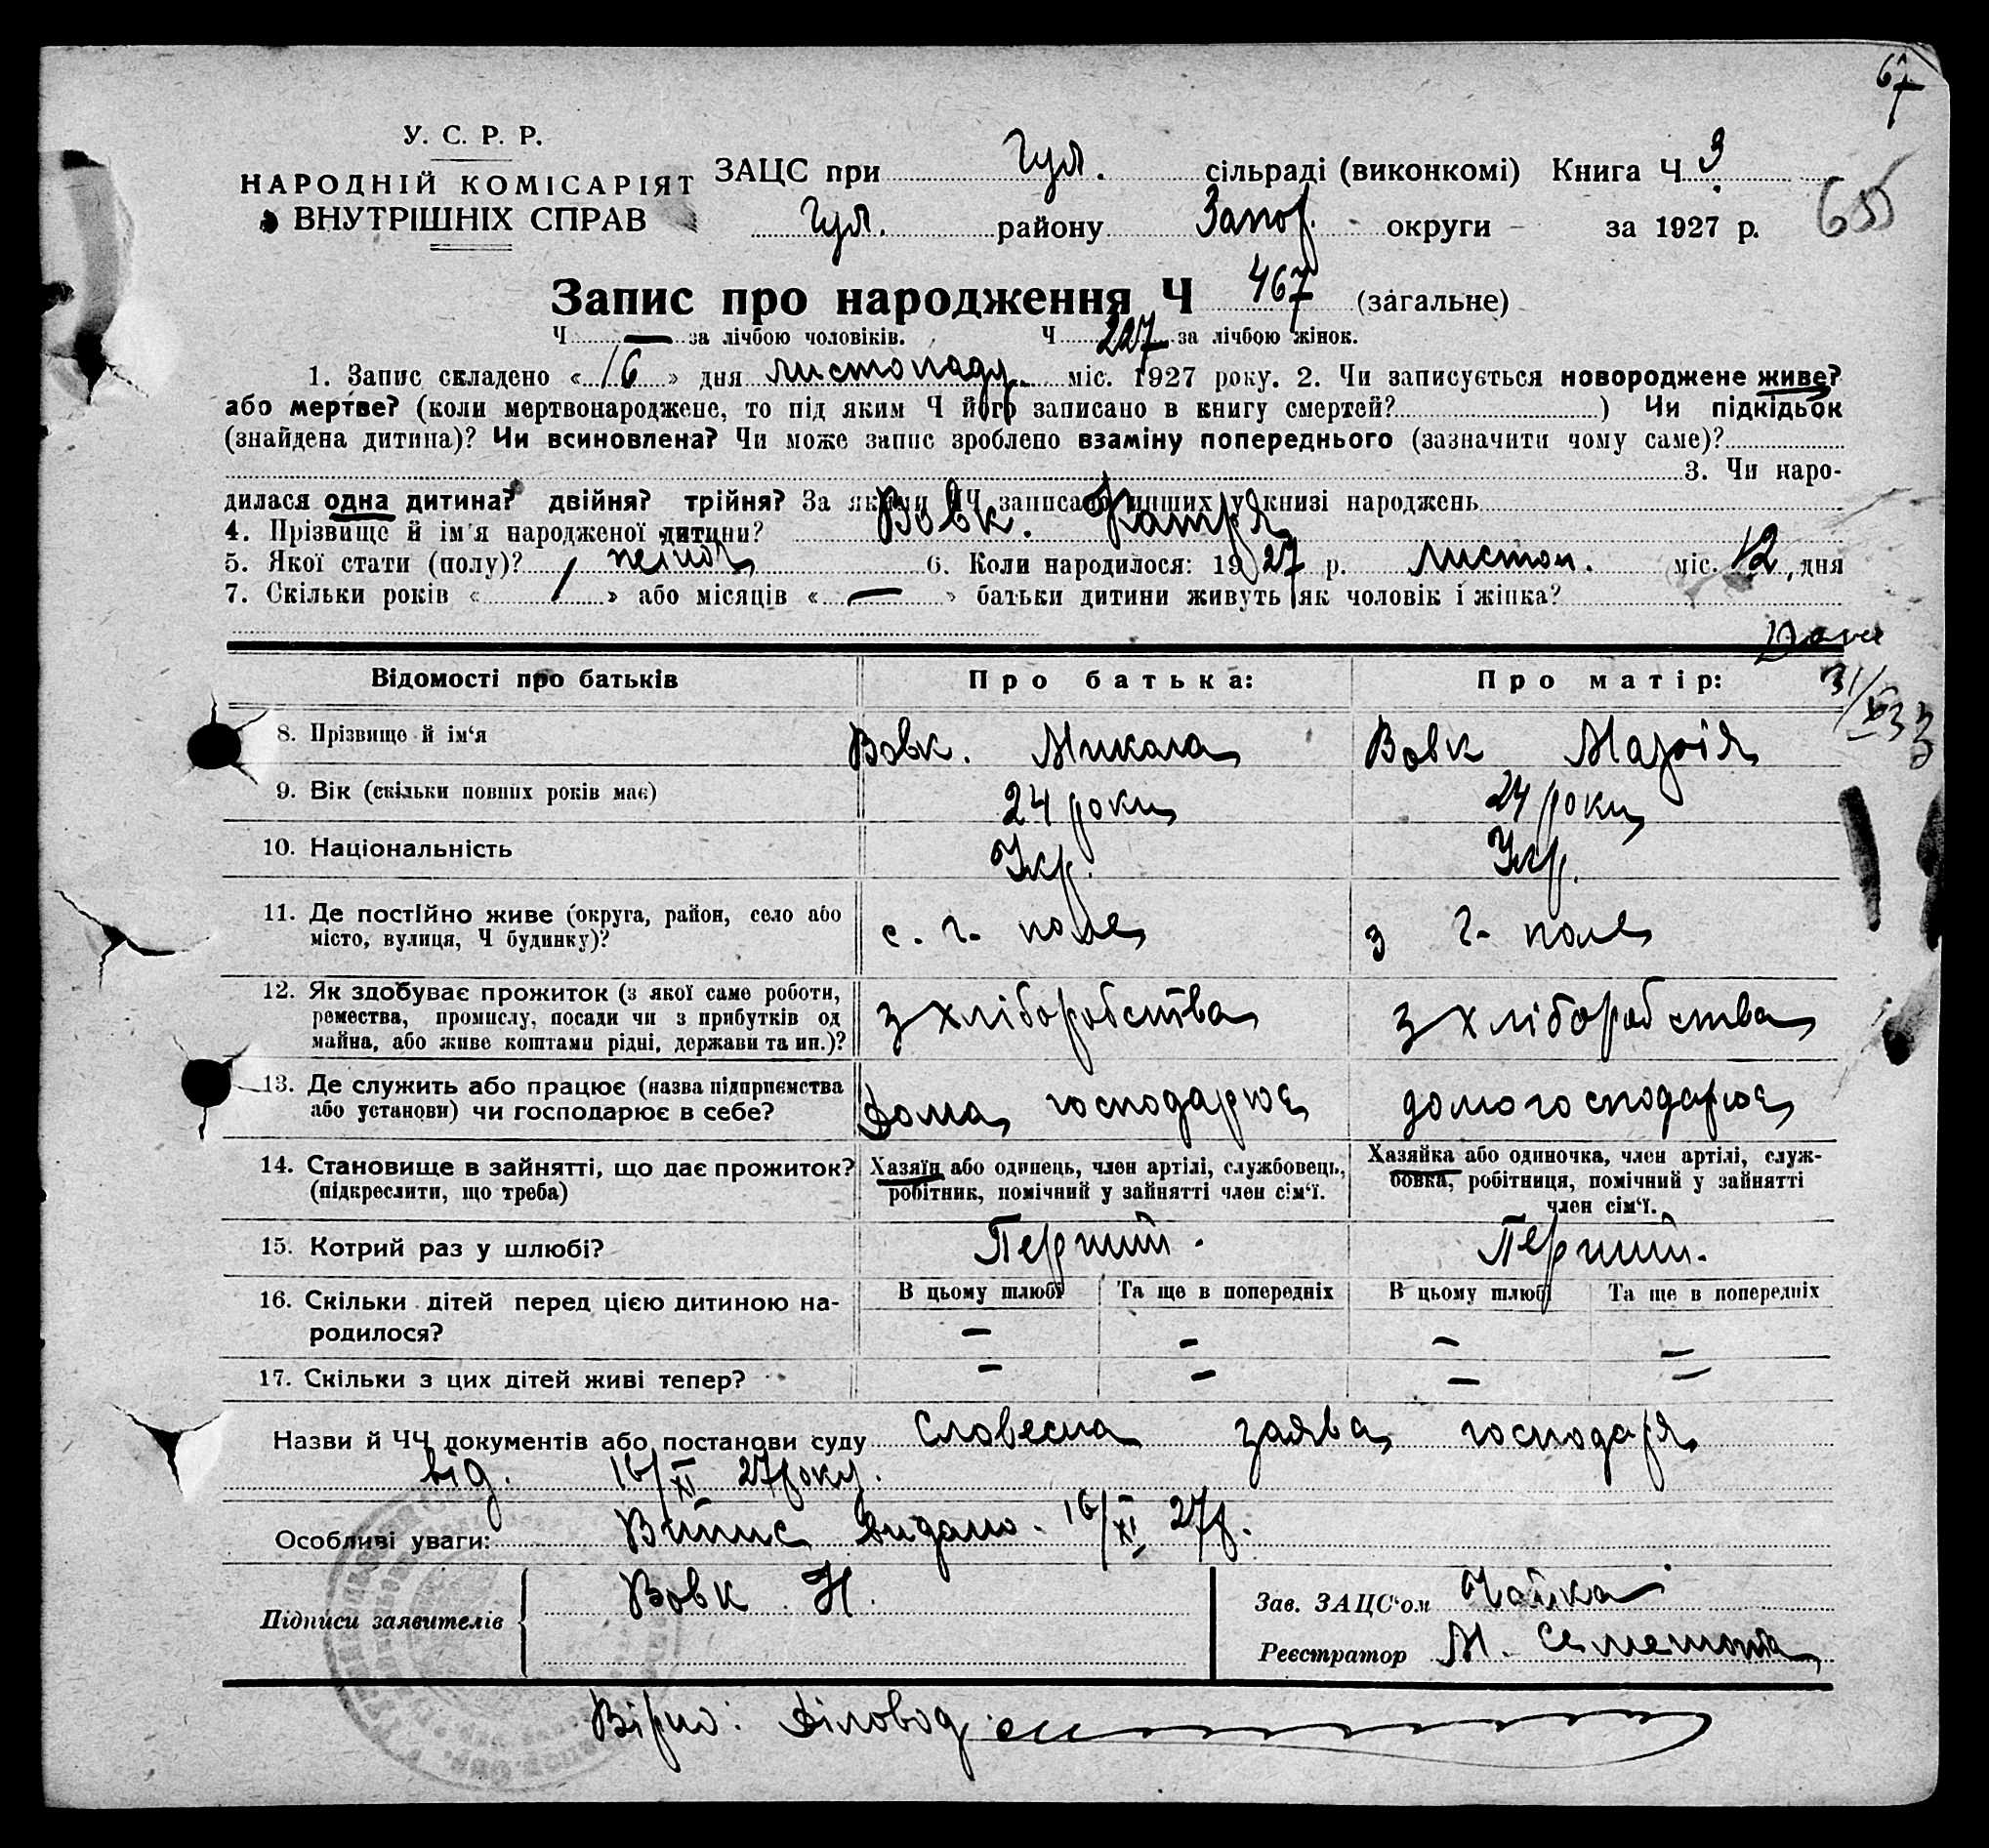 67
У. С. Р. Р.
НАРОДНІЙ КОМІСАРІЯТ
ВНУТРІШНІХ СПРАВ
ЗАЦС при Гул. сільраді (виконкомі) Книга Ч 3
Гул. району Запор. округи за 1927 р.
655
Запис про народження Ч 467 (загальне)
Ч — за лічбою чоловіків. Ч 227 за лічбою жінок.
1. Запис складено « 16 » дня листопаду міс. 1927 року. 2. Чи записується новороджене живе?
або мертве? (коли мертвонароджене, то під яким Ч його записано в книгу смертей? ) Чи підкідьок
(знайдена дитина)? Чи всиновлена? Чи може запис зроблено взаміну попереднього (зазначити чому саме)?
3. Чи наро-
дилася одна дитина? двійня? трійня? За якими ЧЧ записано инших у книзі народжень
4. Прізвище й ім'я народженої дитини? Вовк. Катря
5. Якої стати (полу)? жіноч 6. Коли народилося: 1927 р. листоп. міс. 12 дня
7. Скільки років « 1 » або місяців « — » батьки дитини живуть як чоловік і жінка?
31/
33
Відомості про батьків Про батька: Про матір:
8. Прізвище й ім'я Вовк. Микола Вовк Марія
9. Вік (скільки повних років має) 24 роки 24 роки
10. Національність Укр. Укр.
11. Де постійно живе (округа, район, село або
місто, вулиця, Ч будинку)? с. г. поле з г. поле
12. Як здобуває прожиток (з якої саме роботи,
ремества, промислу, посади чи з прибутків од
майна, або живе коштами рідні, держави та ин.)? з хліборобства з хліборобства
13. Де служить або працює (назва підприємства
або установи) чи господарює в себе? Дома господарює домогосподарює
14. Становище в зайнятті, що дає прожиток?
(підкреслити, що треба)
Хазяїн або одинець, член артілі, службовець,
робітник, помічний у зайнятті член сім'ї.
Хазяйка або одиночка, член артілі, служ-
бовка, робітниця, помічний у зайнятті
член сім'ї.
15. Котрий раз у шлюбі? Перший. Перший.
16. Скільки дітей перед цією дитиною на-
родилося?
В цьому шлюбі Та ще в попередніх В цьому шлюбі Та ще в попередніх
— — — —
17. Скільки з цих дітей живі тепер? — — — —
Назви й ЧЧ документів або постанови суду словесна заява господаря
від. 16/XI 27 року.
Особливі уваги: Випис видано. 16/XI 27 р.
Підписи заявителів Вовк Н.
Зав. ЗАЦС'ом Чайка
Реєстратор М.
Вірно: Діловод